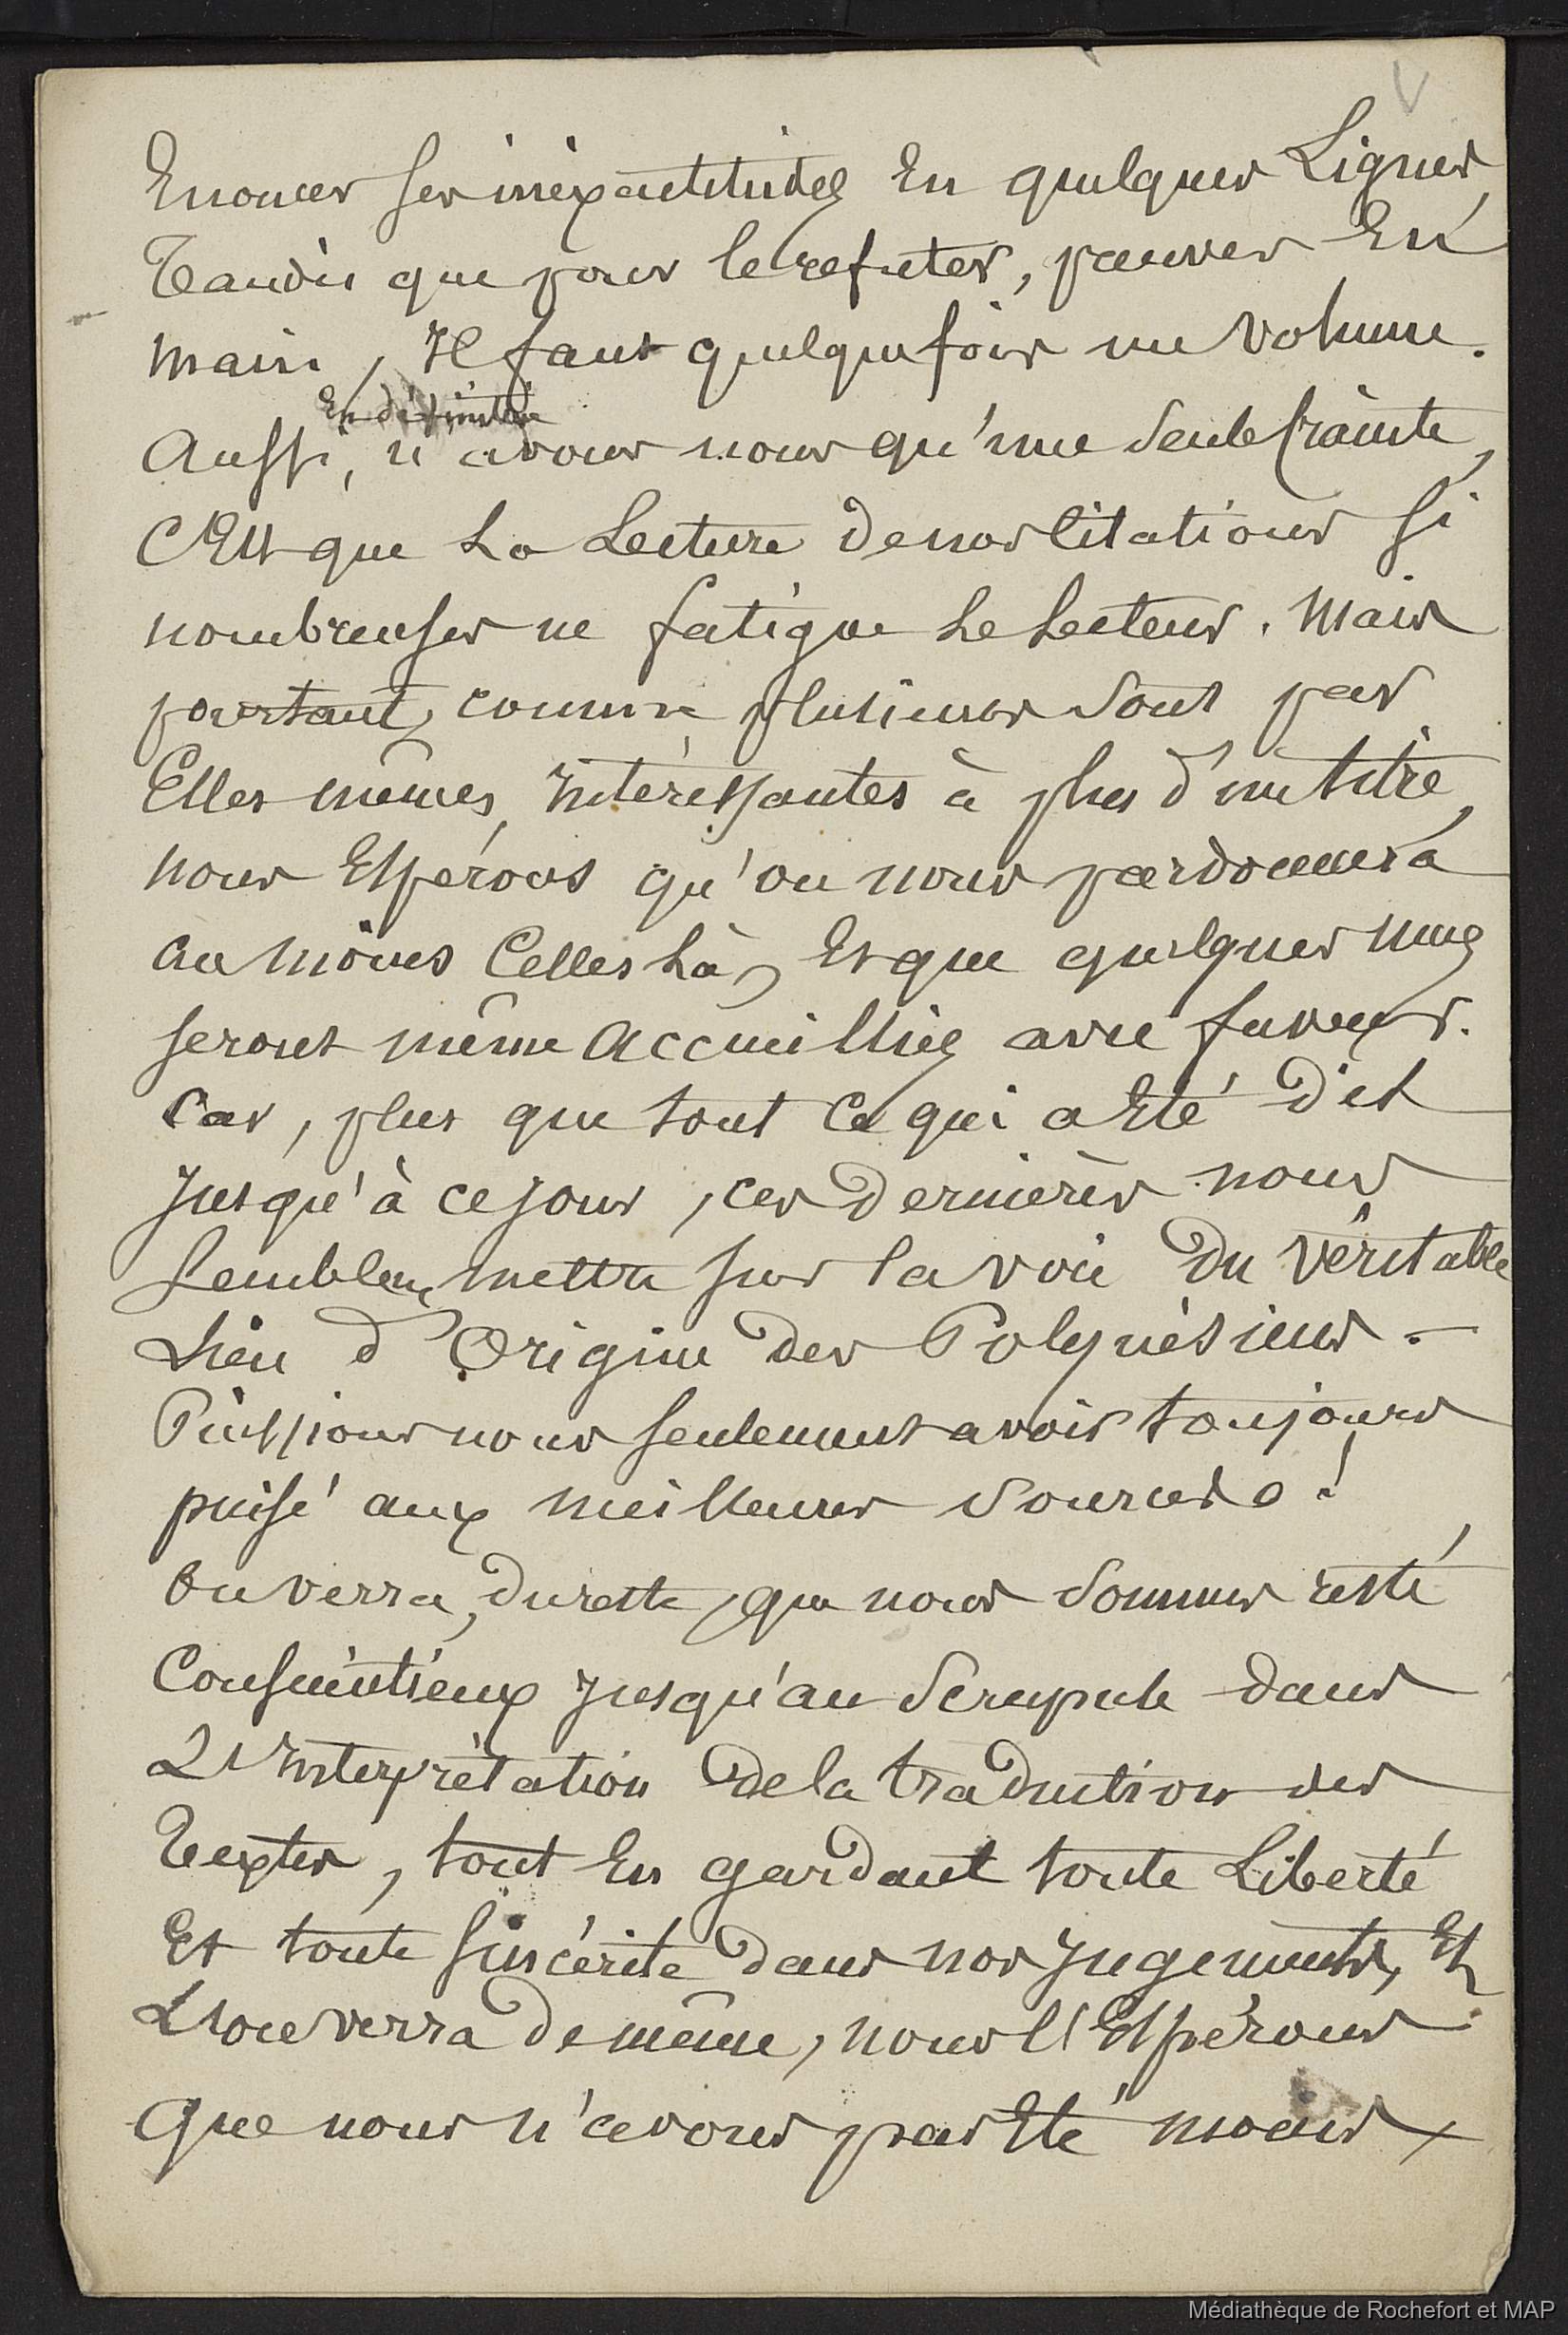 V
Enoncer ses inéxactitudes En quelques Lignes,
Tandis que pour le refuter, preuves En
main, Il faut quelquefois un volume.
En définitive
Aussi, n'avons nous qu'une seule crainte,
C'Est que La Lecture de nos citations si
nombreuses ne fatigue Le Lecteur. Mais
pourtant, comme plusieurs sont par
Elles mêmes, Intéressantes à plus d'un titre,
nous Espérons qu'on nous pardonnera
au moins Celles Là, Et que quelques unes
seront même Accueillies avec faveur.
Car, plus que tout ce qui a Eté dit
Jusqu'à ce jour, ces dernières nous
semblent mettre sur la voie du véritable
Lieu d'Origine des Polynésiens. –
Puissions nous seulement avoir toujours
puisé aux meilleures sources !
On verra, du reste, que nous sommes resté
Consciencieux Jusqu'au scrupule dans
L'Interprétation de la traduction des
Textes, tout En gardant toute Liberté
Et toute sincérité dans nos Jugements, Et
L'on verra de même, nous l'Espérons
Que nous n'avons pas Eté moins
Médiathèque de Rochefort et MAP